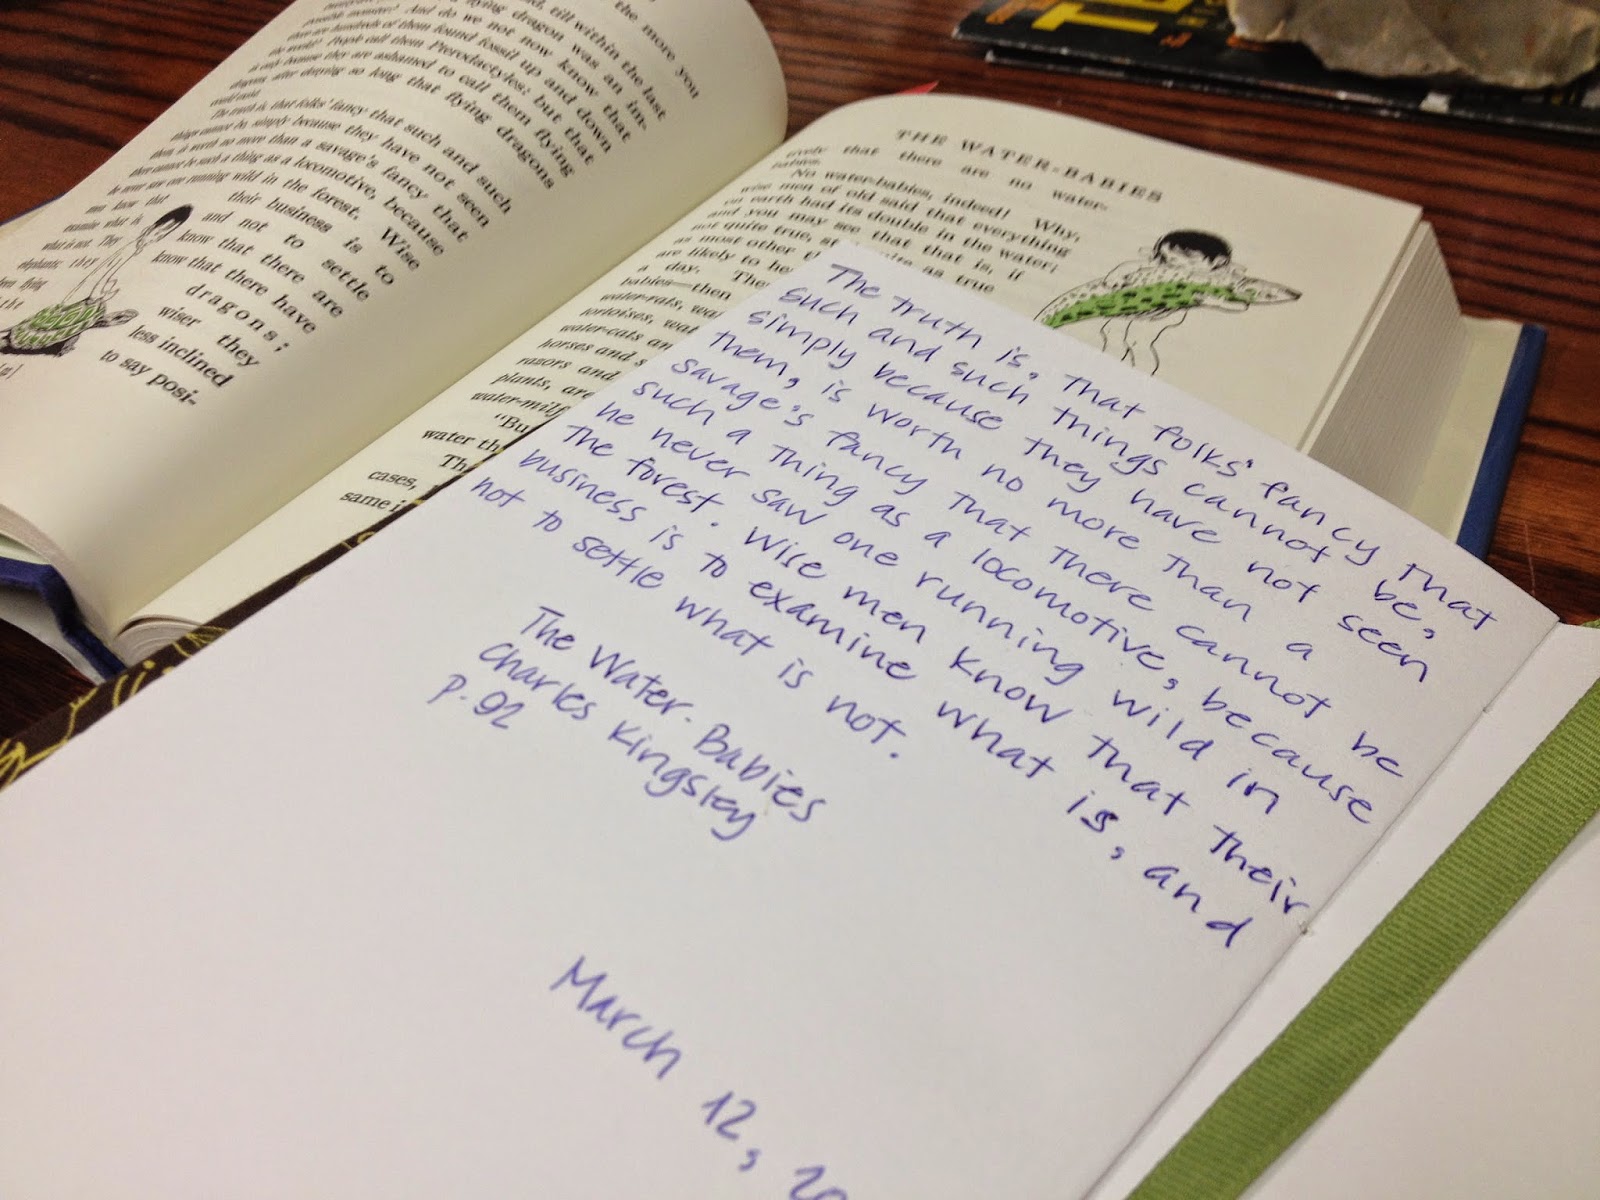 the more you
flying dragon was an im-
And do we not now know that
there are hundreds of them found fossil up and down
the world? People call them Pterodactyles: but that
is only because they are ashamed to call them flying
dragons, after denying so long that flying dragons
could exist.
The truth is, that folks' fancy that such and such
things cannot be, simply because they have not seen
them, is worth no more than a savage's fancy that
there cannot be such a thing as a locomotive, because
he never saw one running wild in the forest. Wise
men know that their business is to
examine what is and not to settle
what is not. They know that there are
know that there have
dragons;
wiser they
less inclined
to say posi-
THE WATER-BABIES
tively that there are no water-
babies.
No water-babies, indeed? Why,
wise men of old said that everything
on earth had its double in the water;
and you may see that is, if
not quite true, as true
as most other
are likely to he
a day.
babies—then
water-rats,
tortoises,
water-cats an
horses and
razors and
plants, are
water-milf
"Bu
water th
Th
cases,
same i
The truth is, that folks' fancy that
such and such things cannot be,
simply because they have not seen
them, is worth no more than a
savage's fancy that there cannot be
such a thing as a locomotive, because
he never saw one running wild in
the forest. Wise men know that their
business is to examine what is, and
not to settle what is not.
The Water-Babies
Charles Kingsley
P. 92
March 12, 20